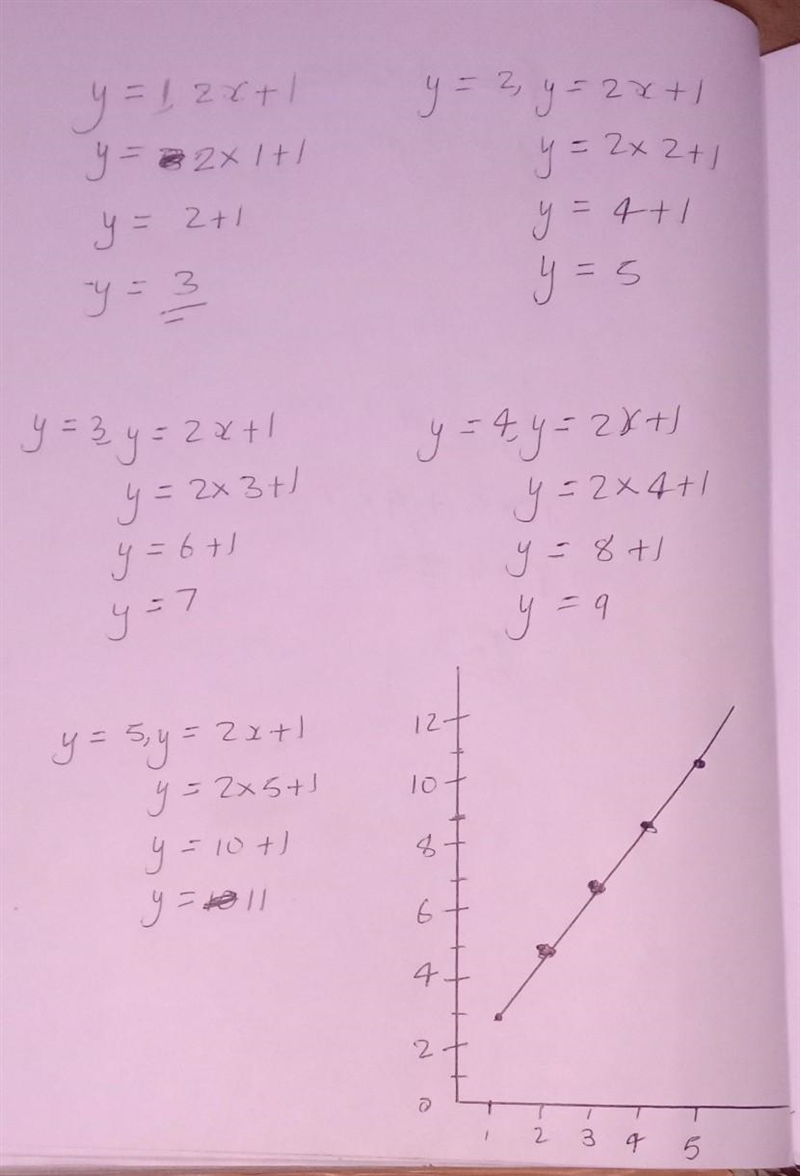 y = 1, 2x+1
y = 2×1+1
y = 2+1
-y = 3
y = 2, y = 2x+1
y = 2×2+1
y = 4+1
y = 5
y = 3, y = 2x+1
y = 2×3+1
y = 6+1
y = 7
y = 4, y = 2x+1
y = 2×4+1
y = 8+1
y = 9
y = 5, y = 2x+1
y = 2×5+1
y = 10+1
y = 11
12
10
8
6
4
2
0
1 2 3 4 5